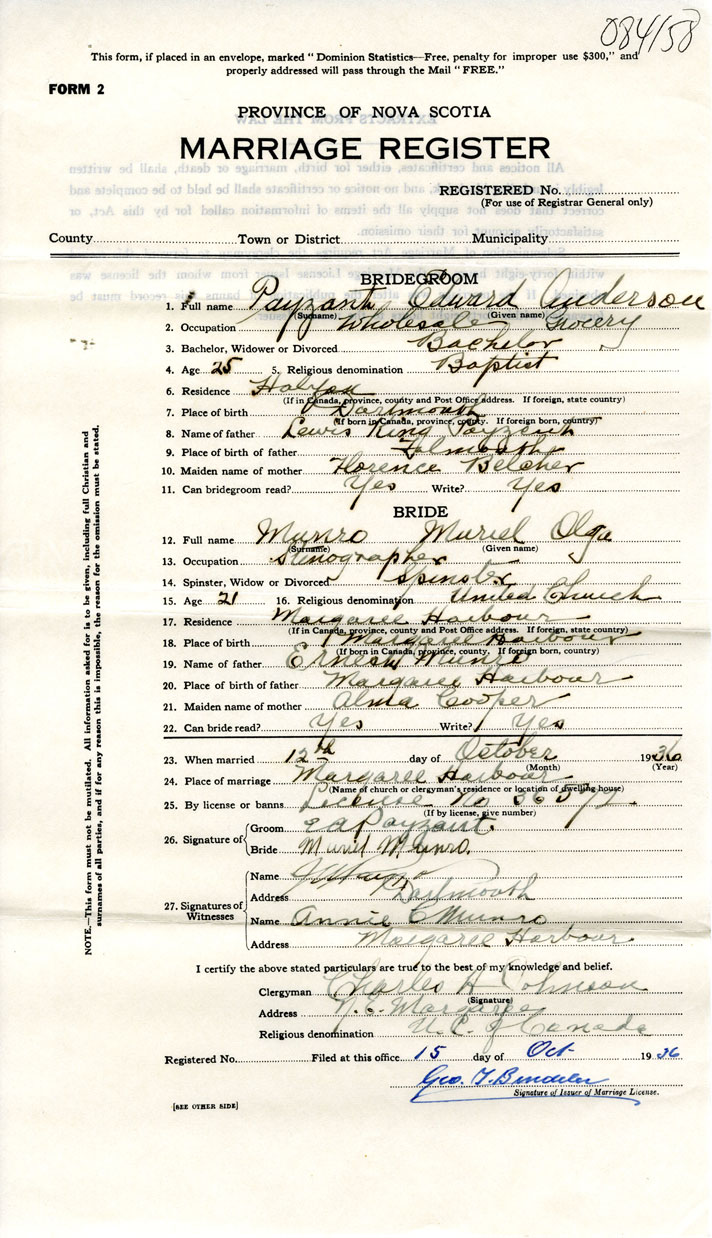 084158
This form, if placed in an envelope, marked "Dominion Statistics—Free, penalty for improper use $300," and
properly addressed will pass through the Mail "FREE."
FORM 2
PROVINCE OF NOVA SCOTIA
MARRIAGE REGISTER
REGISTERED No.
(For use of Registrar General only)
County Town or District Municipality
BRIDEGROOM
1. Full name Payzant, Edward Anderson
(Surname) (Given name)
2. Occupation Wholesale Grocery
3. Bachelor, Widower or Divorced Bachelor
4. Age 25 5. Religious denomination Baptist
6. Residence Halifax
(If in Canada, province, county and Post Office address. If foreign, state country)
7. Place of birth Dartmouth
(If born in Canada, province, county. If foreign born, country)
8. Name of father Lewis King Payzant
9. Place of birth of father Falmouth
10. Maiden name of mother Florence Belcher
11. Can bridegroom read? Yes Write? Yes
BRIDE
12. Full name Munro Muriel Olga
(Surname) (Given name)
13. Occupation Stenographer
14. Spinster, Widow or Divorced Spinster
15. Age 21 16. Religious denomination United Church
17. Residence Margaree Harbour
(If in Canada, province, county and Post Office address. If foreign, state country)
18. Place of birth Margaree Harbour
(If born in Canada, province, county. If foreign born, country)
19. Name of father Ernest Munro
20. Place of birth of father Margaree Harbour
21. Maiden name of mother Alma Cooper
22. Can bride read? Yes Write? Yes
23. When married 12th day of October 1936
(Month) (Year)
24. Place of marriage Margaree Harbour
(Name of church or clergyman's residence or location of dwelling house)
25. By license or banns License No 36572
(If by license, give number)
26. Signature of Groom E A Payzant.
Bride Muriel Munro.
27. Signatures of Witnesses
Name
Address Dartmouth
Name Annie C Munro
Address Margaree Harbour
I certify the above stated particulars are true to the best of my knowledge and belief.
Clergyman Charles A Johnson
(Signature)
Address N.E. Margaree
Religious denomination U.C. of Canada
Registered No. Filed at this office 15 day of Oct 1936
Geo. T.
Signature of Issuer of Marriage License.
[SEE OTHER SIDE]
NOTE.—This form must not be mutilated. All information asked for is to be given, including full Christian and
surnames of all parties, and if for any reason this is impossible, the reason for the omission must be stated.